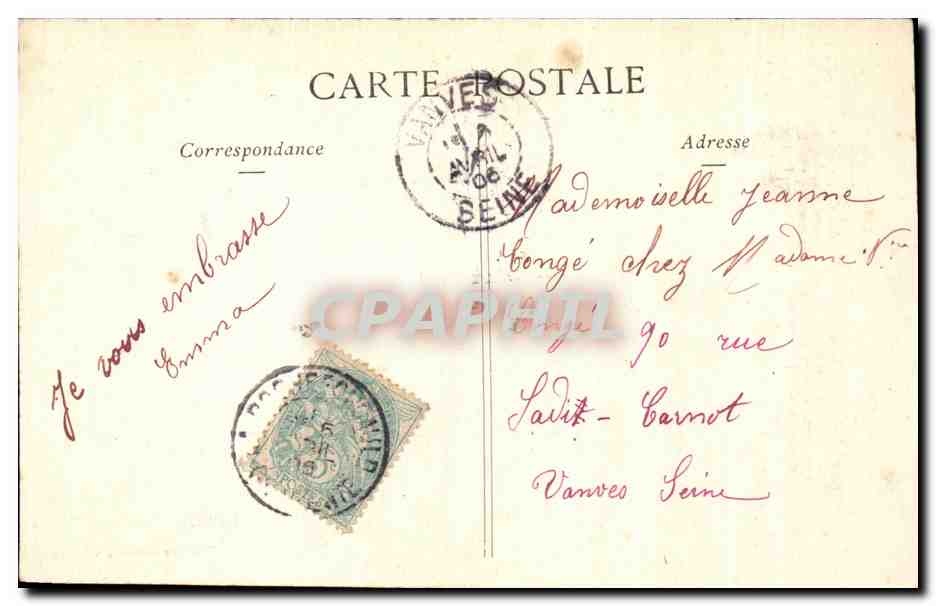 CARTE POSTALE
Correspondance
Adresse
VANVES
AVRIL
06
SEINE
Je vous embrasse
Emma
Mademoiselle Jeanne
Congé chez Madame Vve
Congé 90 rue
Sadi - Carnot
Vanves Seine
CPAPHIL